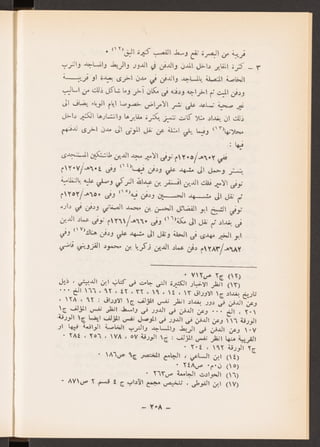 قريبة من البصرة تقع وسط القصب كثيرة البق(١٢) ٠
٣ - كثرة المقابر داخل المدن والدفن في الدور والربط والمساجد والترب
الخاصة المتصلة بالمساجد والدفن في مدن اخرى بعيدة او قريبـــة
ودفن الميت ثم اخراجه ودفنه في مكان آخر وما شاكل ذلك من اساليب
غير صحية تساعد على نشر الامراض خصوصا ايام الوباء يضاف الى
ذلك ان بغداد مثلا كانت تتميز بكثرة مقابرها وانتشارها الكثير داخل
محلاتها(١٣) وفيما يلي امثلة عن نقل الموتى الى مدن اخرى لدفنهم
فيها :
ففي ٦٠٢هـ/١٢٠٥م توفي الأمير مجد الدين طاشتكين المستنجدي
بتستر وحمل الى مشهد علي ودفن فيها(١٤) وفي ٦٠٤هـ/١٢٠٧م
توفي الأمير فلك الدين آقسنقر بن عبدالله التركي وصلي عليه بالنظامية
ثم نقل الى مشــهد الحســـين ودفن فيه(١٥) وفي ٦٥٠هـ/١٢٥٢م
توفي الشيخ ابو الفضائل الحسن بن محمد الصغاني ودفن في داره
في بغداد ثم نقل الى مكة(١٦) وفي ٦٦٠هـ/١٢٦١م توفي عماد الدين
ابو الخير مهدي في الحلة ونقل الى مشهد علي ودفن هناك(١٧) وفي
٦٨٢هـ/١٢٨٣م دفن عماد الدين زكريا بن محمود القزويني قاضي
(١٢) ج٢ ص٧١٢ ٠
(١٣) انظر الاخبار الكثيرة التي جاءت في كتاب ابن الدبيثي ، ذيل
تاريخ بغداد ج١ الاوراق ١٣ ، ١٤ ، ١٩ ، ٣٢ ، ٤٢ ، ٩٢ ، ١٦٦ الخ ٠٠٠
وعن الدفن في دور بغداد انظر نفس المؤلف ج١ الاوراق ٩٢ ، ١٢٨ ،
٢٠١ ، الخ ٠٠٠ وعن الدفن في الدور في واسط انظر نفس المؤلف ج١
الورقة ١١٦ وعن الدفن في الدور في الموصل نفس المؤلف ايضا ج١ الورقة
١٠٧ وعن الدفن في الربط والمساجد والترب الخاصة الواقعة فيها او
القريبة منها انظر نفس المؤلف : ج١ الورقة ٥٧ ، ١٧٨ ، ٢٥٦ ، ٢٨٤ ٠
ج٢ الورقة ١٩٢ ، ٢٠٤ ٠
(١٤) ابن الساعي ، الجامع المختصر ج٩ ص١٨٦ ٠
(١٥) ن٠م ص٢٤٨ ٠
(١٦) الحوادث الجامعة ص٢٦٣ ٠
(١٧) ابن الفوطي ، تلخيص مجمع الآداب ج ٤ قسم ٢ ص٨٧١ ٠
- ٢٠٨ -